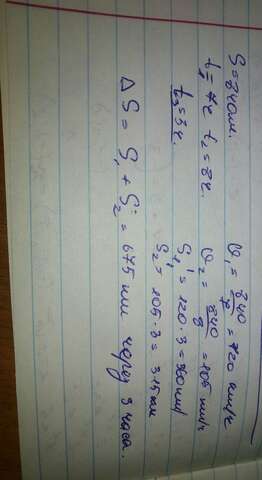 S = 840 км.
t₁ = 7ч t₂ = 8ч.
t₃ = 3ч.
υ₁ = 840/7 = 120 км/ч
υ₂ = 840/8 = 105 км/ч
S₁ = 120 · 3 = 360 км
S₂ = 105 · 3 = 315 км
Δ S = S₁ + S₂ = 675 км через 3 часа.